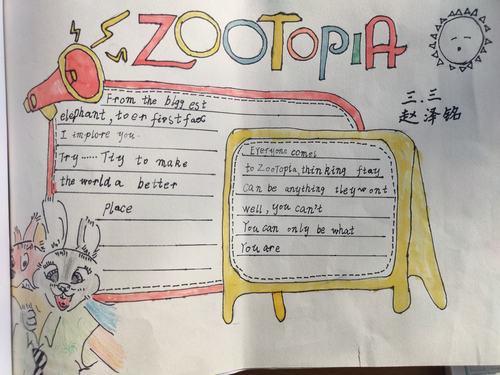 ZOOTOPIA
三.三
赵泽铭
From the biggest
elephant, to er first fads
I implore you.
Try ...... Try to make
the world a better
Place
Everyone comes
to Zootopia, thinking ftay
can be anything they wont
well, you can't
You can only be what
You are